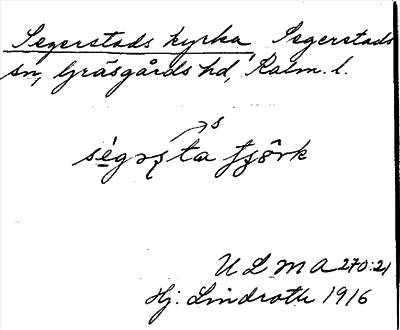 Segerstads kyrka, Segerstads
sn, Gräsgårds hd, Kalm. l.
s
ségəʂta fjörk
U L M A 270:21
Hj. Lindroth 1916